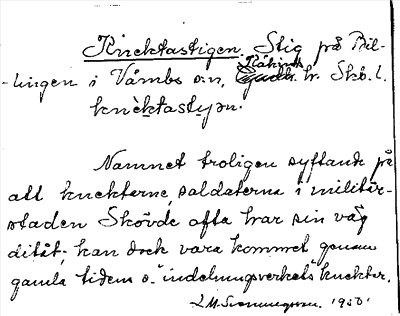 Knektastigen. Stig på Bil-
-lingen i Våmbs s:n, Kåkinds hr. Skb. l.
knèktastɩ̣ɡən.
Namnet troligen syftande på
att knektarne, soldaterna i militär-
staden Skövde ofta har sin väg
ditåt; kan dock vara kommet genom
gamla tidens s. k. indelningsverkets knektar.
1950